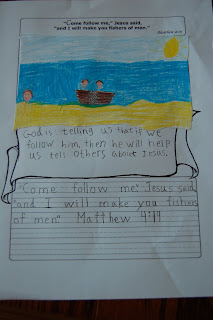 "Come follow me," Jesus said,
"and I will make you fishers of men."
Matthew 4:19
God is telling us that if we
follow him, then he will help
us tell others about Jesus.
"Come follow me," Jesus said,
"and I will make you fishers
of men." Matthew 4:19